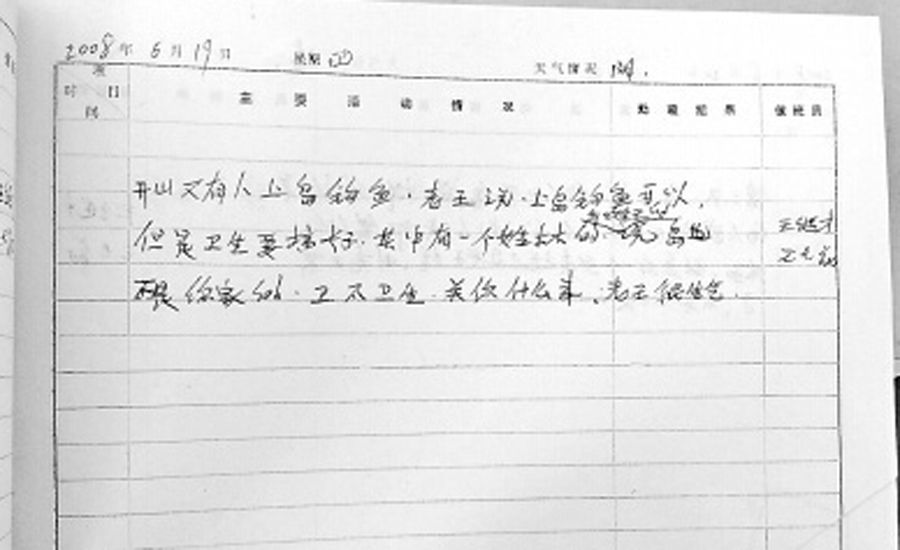 2008年 6月19日 星期四 天气情况 阴.
项目
时间
主要活动情况 勤务记录 值班员
开山又有人上岛钓鱼.老王说.上岛钓鱼可以,
但是卫生要搞好.其中有一个姓 的说岛也
王继才
不是你家的.卫不卫生.关你什么事.老王很生气.
王仕花